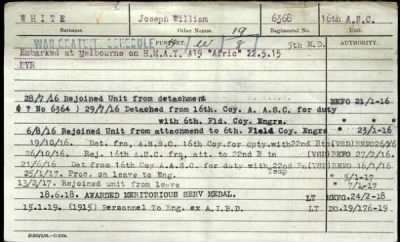 WHITE Joseph William 6368 16th A.S.C.
Surname. Other Names. Regimental No. Unit.
WAR GRATUITY SCHEDULE PURPORT. 5th M.D. AUTHORITY.
Embarked at Melbourne on H.M.A.T. A19 "Afric" 22.5.15
DVR
28/7/16 Rejoined Unit from detachment BEFO 21/1-16
(? No 6364 ) 29/7/16 Detached from 16th. Coy. A. A.S.C. for duty
with 6th. Fld. Coy. Engrs. " " "
6/8/16 Rejoined Unit from attachmend to 6th. Field Coy. Engrs " 23/1-16
19/10/16. Det. fro, A.A.S.C. 16th Coy. for duty. with 22nd Btn (VHD) BEFO
26/10/16. Rej. 16th A.S.C. frq, att. to 22nd B tn (VHD) BEFO
21/6/16 Det from 16th Coy A.A.S.C. for duty with 22nd Bn (VHD) BEFO
25/1/17. Proc. on leave to Eng. Temp " 5/1-17
13/2/17. Rejoined unit from leave " 7/1-17
18.6.18. AWARDED MERITORIOUS SERV MEDAL. LT MEFO 24/2-18
15.1.19. (1915) Personnel To Eng. ex A.I.B.D. LT DO.19/176-19.